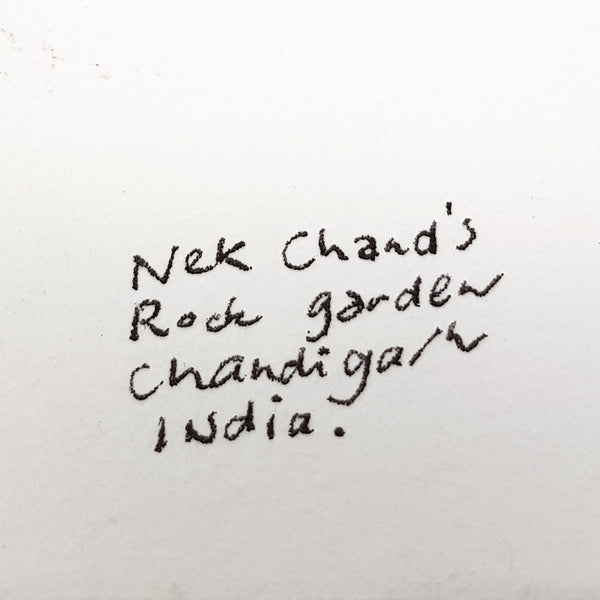 Nek Chand's
Rock garden
Chandigarh
INdia.